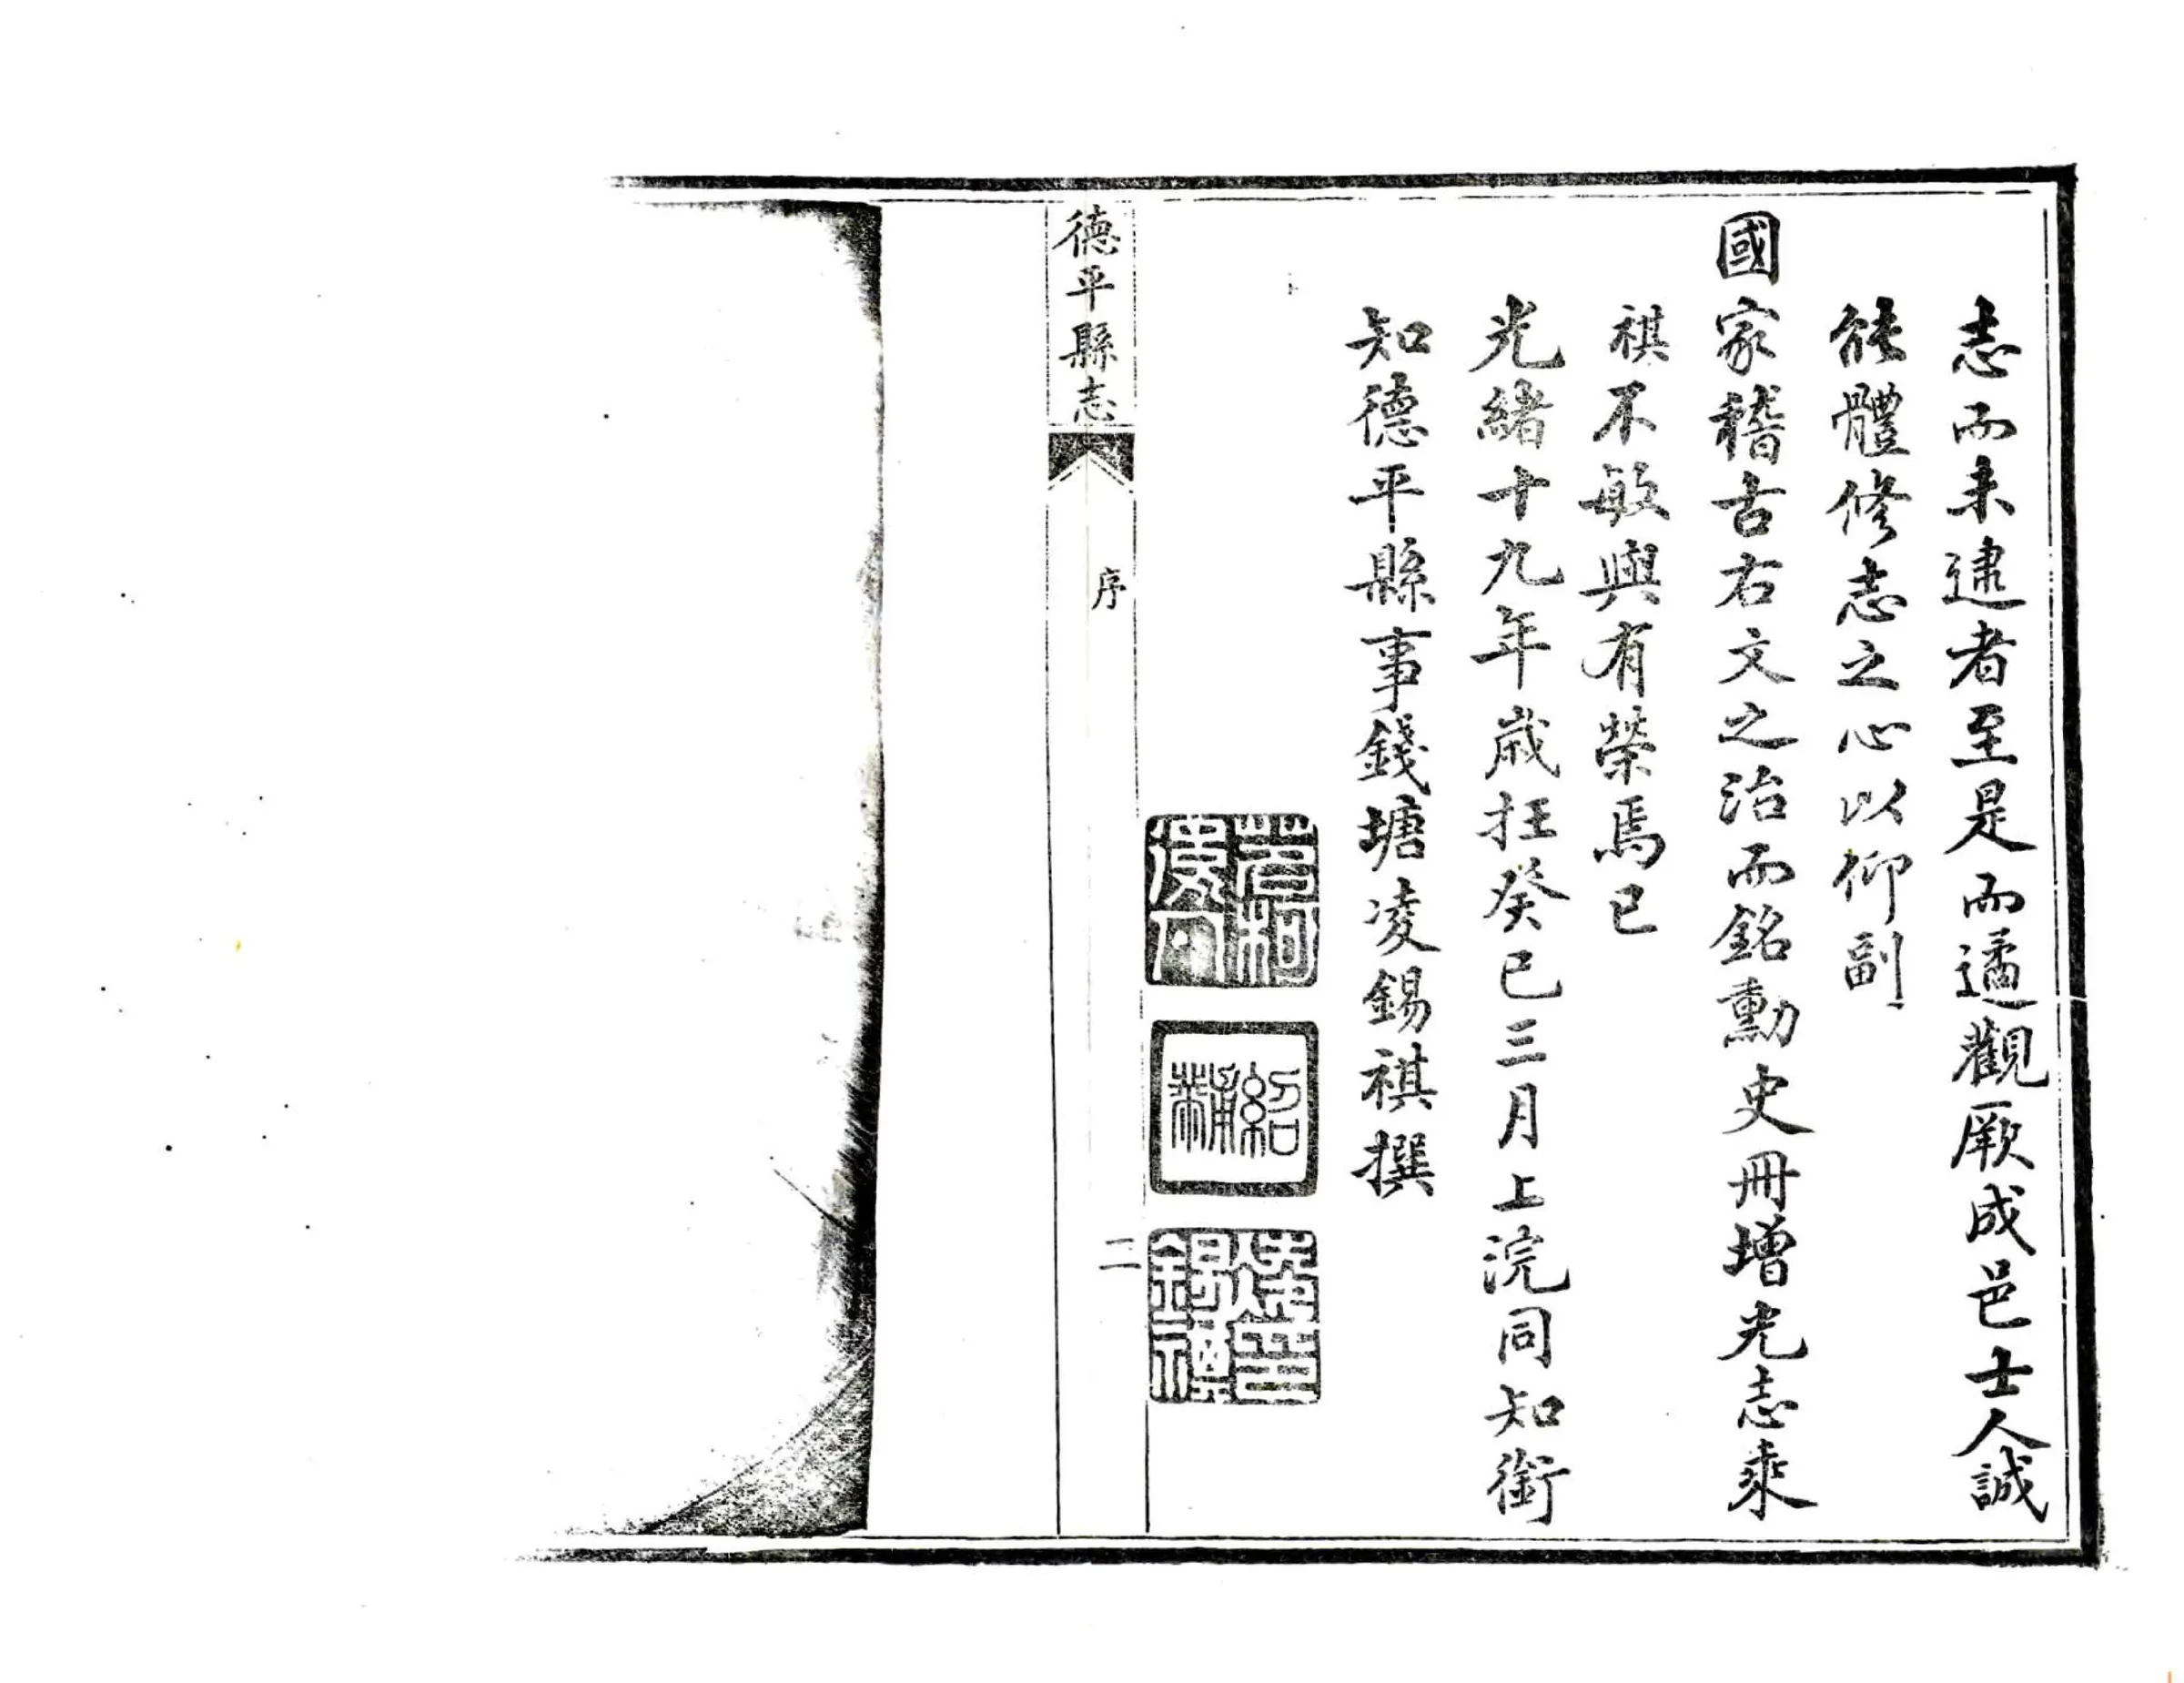 志而未逮者至是而遹觀厥成邑士人誠
能體修志之心以仰副
國家稽古右文之治而銘勳史冊增光志乘
祺不敏與有榮焉已
光緒十九年歲在癸巳三月上浣同知銜
知德平縣事錢塘凌錫祺撰
紹黼
德平縣志
序
二